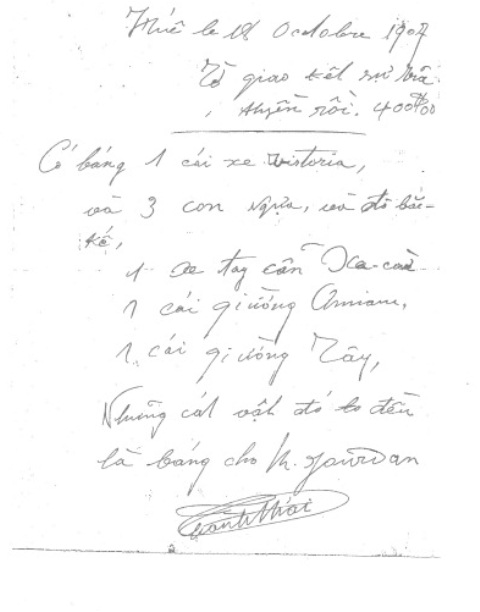 Huê le 18 Octobre 1907
Tờ giao kết sự trã
thyền rồi. 400$00
Có báng 1 cái xe Vistoria,
và 3 con ngựa, và đồ bắc-
kế,
1 xe tay cẩn Xa-cừ
1 cái giường Annam,
1 cái giường Tây,
Nhưng cát vật đó to đều
là báng cho M. Jourdan
Thành Thái